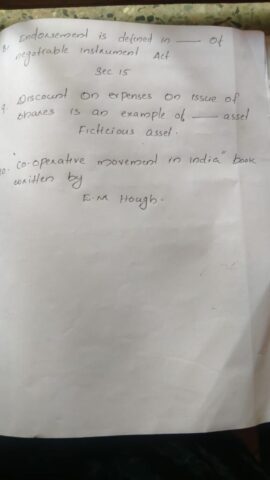 8. Endorsement is defined in ___ of
negotiable instrument Act
Sec 15
9. Discount on expenses on issue of
shares is an example of ___ asset
Ficticious asset.
10. "Co-operative movement in India" book
written by
E.M Hough.